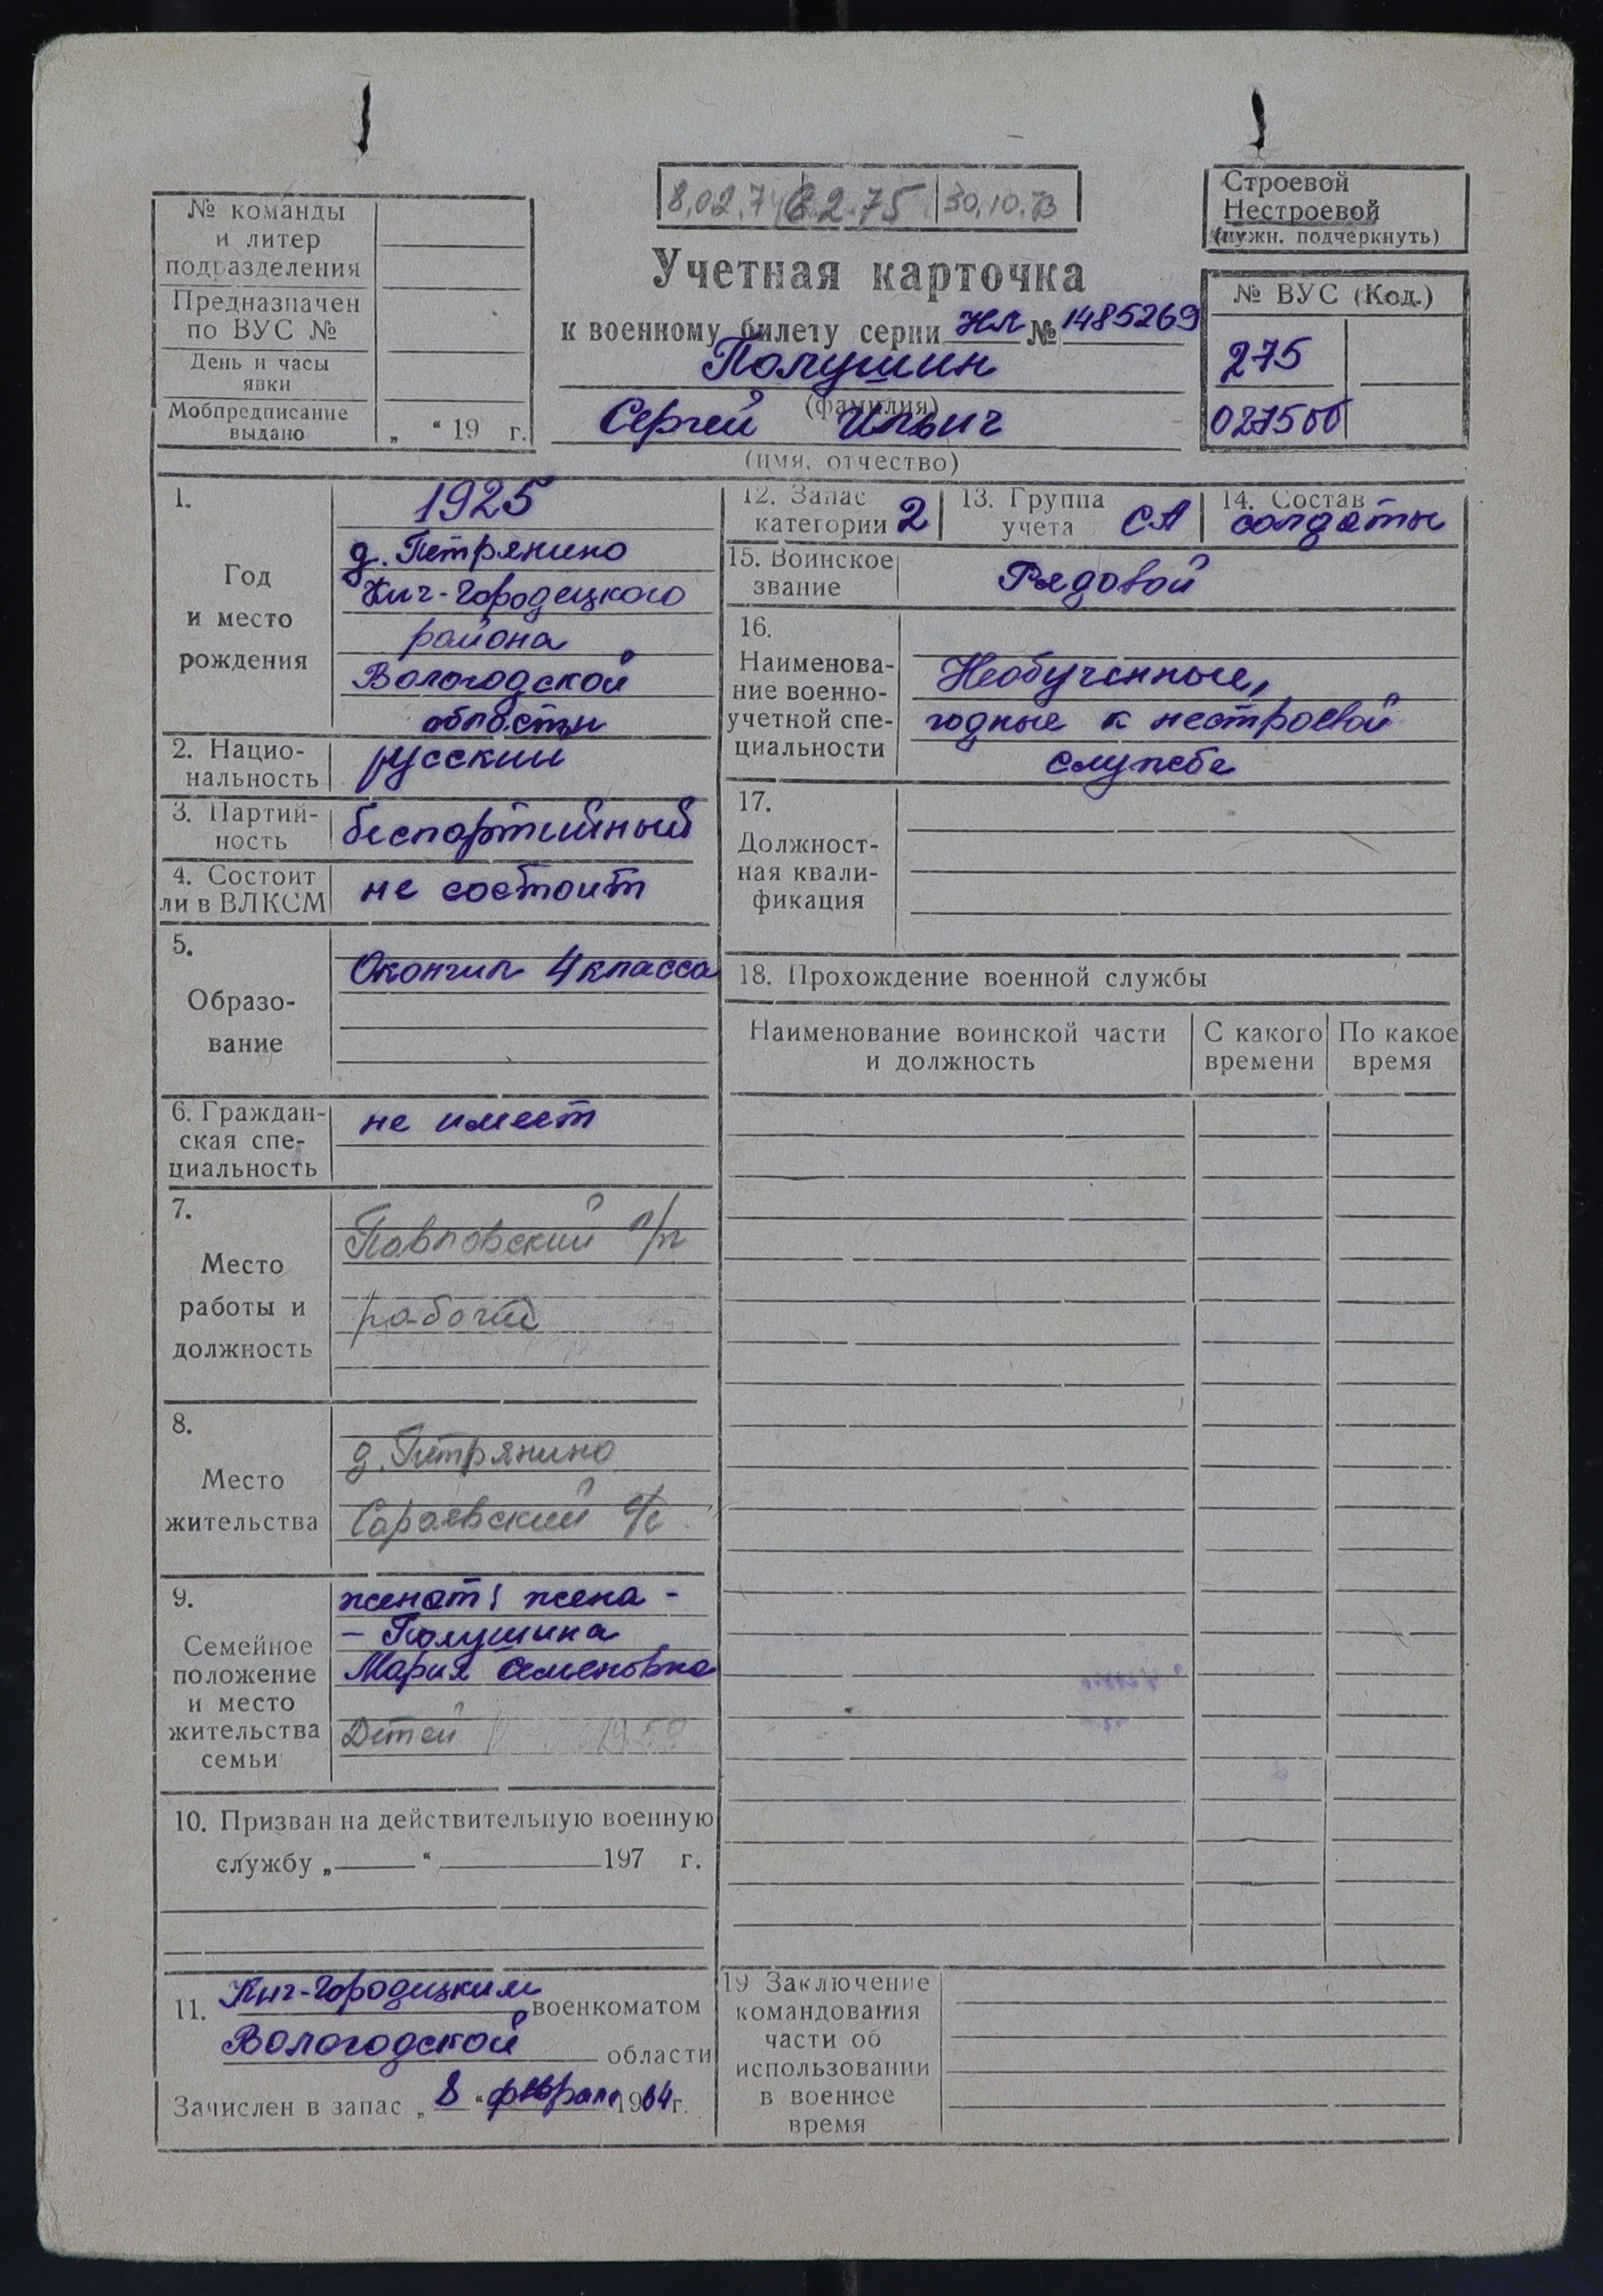 8.02.74 8.2.75 30.10.73
Строевой
Нестроевой
(нужн. подчеркнуть)
№ команды
и литер
подразделения
Предназначен
по ВУС №
День и часы
явки
Мобпредписание
выдано „ “ 19 г.
Учетная карточка
к военному билету серии НЛ № 1485269
Полушин
(фамилия)
Сергей Ильич
(имя, отчество)
№ ВУС (Код.)
275
027500
1.
Год
и место
рождения
1925
д. Петрянино
Кич-Городецкого
района
Вологодской
области
2. Нацио-
нальность
русский
3. Партий-
ность
беспартийный
4. Состоит
ли в ВЛКСМ
не состоит
5.
Образо-
вание
Окончил 4 класса
6. Граждан-
ская спе-
циальность
не имеет
7.
Место
работы и
должность
Павловский л/п
рабочий
8.
Место
жительства
д. Петрянино
Сараевский с/с
9.
Семейное
положение
и место
жительства
семьи
женат; жена -
- Полушина
Мария Семеновна
Детей
10. Призван на действительную военную
службу „ “ 197 г.
11. Кич-Городецким военкоматом
Вологодской области
Зачислен в запас „ 8 “ февраля 1964 г.
12. Запас
категории 2
13. Группа
учета СА
14. Состав
солдаты
15. Воинское
звание
Рядовой
16.
Наименова-
ние военно-
учетной спе-
циальности
Необученные,
годные к нестроевой
службе
17.
Должност-
ная квали-
фикация
18. Прохождение военной службы
Наименование воинской части
и должность
С какого
времени
По какое
время
19 Заключение
командования
части об
использовании
в военное
время